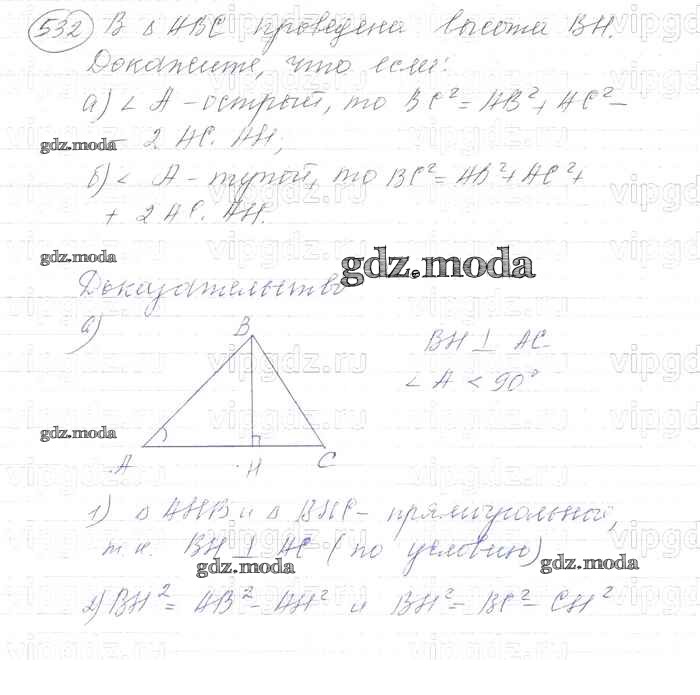 532 В △ ABC проведена высота BH.
Докажите, что если:
а) ∠ A - острый, то BC² = AB² + AC² -
- 2 AC · AH;
gdz.moda
б) ∠ A - тупой, то BC² = AB² + AC² +
+ 2 AC · AH.
gdz.moda
gdz.moda
Доказательство
а)
B
BH ⊥ AC
∠ A < 90°
gdz.moda
A H C
1) △ AHB и △ BHC - прямоугольной,
т.к. BH ⊥ AC (по условию)
gdz.moda
gdz.moda
2) BH² = AB² - AH² и BH² = BC² - CH²